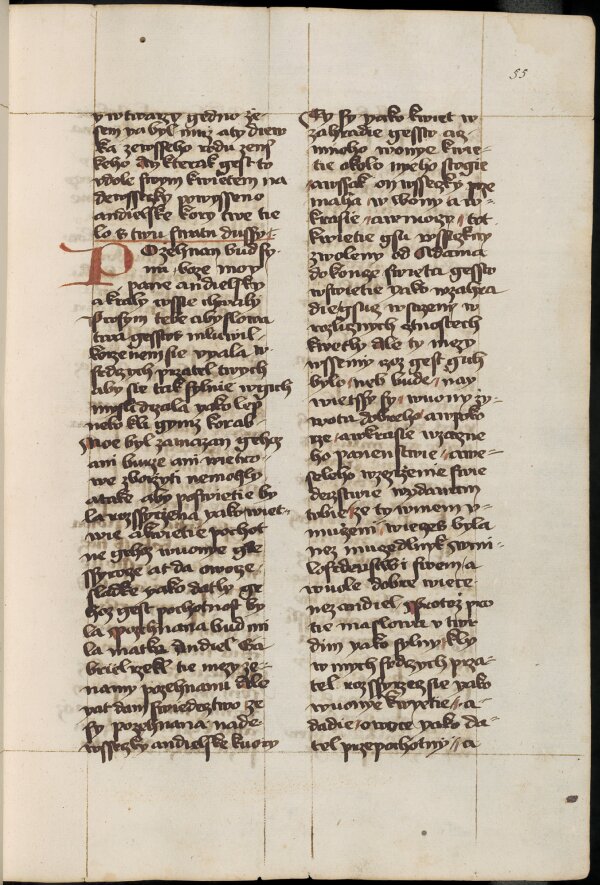 55
y w twarzy gedno ze-
sem pabyl nmz aty diew
ka zewsseho rodu zens
keho aw kterak gest to
vdole swym kwietem na
dewssieczky powysseno
andielske kory twe tie
lo s twu swatu dussy
Pozehnan bud sy
mi boze moy
pane andielsky
a kraly wssie chwaly
Prosym tebe aby slowa
twa gesstos mluwil
korzenem sie vpala w
srdczych przatel twych
aby sie tak sylnie w gich
mysli drzala yako lep
nebo kli gymz korab
Noe byl zamazan gehoz
ani burze ani wietro
we zborzyti nemohly
a take aby poswietie by
la rozssyrzena yako wiet-
wie a kwietie pochot
ne gehoz wuonye gse
ssyroze at da owoze
sladke yako datly ge
hoz gest pochotnost by
la Pozehnana bud mi
la matko andiel Ga
briel rzekl tie mezy ze-
namy pozehnanu Ale
yat dam swiedecztwo ze
sy pozehnana nade
wsseczky andielske kuory
Ty sy yako kwiet w
zahradie gessto az
mnoho wonye kwie-
tie okolo nyeho stogie
awssak on wsseczky prze
maha w wony a w
krasie a w moczy tot
kwietie gsu wssiczkny
zwoleny od Adama
do koncze swieta gessto
w swietie yako w zahra
die gsucz w strzeny w
rozlicznych cznostech
kwetly ale ty mezy
wssemy coz gest gich
bylo neb bude nay
wietssy sy w wony zy-
wota dobreho a w poko
rze a w krasie wzaczne
ho panenstwie a we-
seleho wzdrzenie swie
deczstwie wydawam
tobie ze ty wniem v-
muczeni wieczs byla
nez muczedlnyk s wmi-
lostdenstwi swem a
w uole dobre wiecze
nez andiel Protoz pro
tie ma slowa v twr
dim yako sylny kly
w mych srdczych prza-
tel rozssyrzeze sie yako
wuonye kwyetie a
dadie owocze yako da-
tel przepochotny a